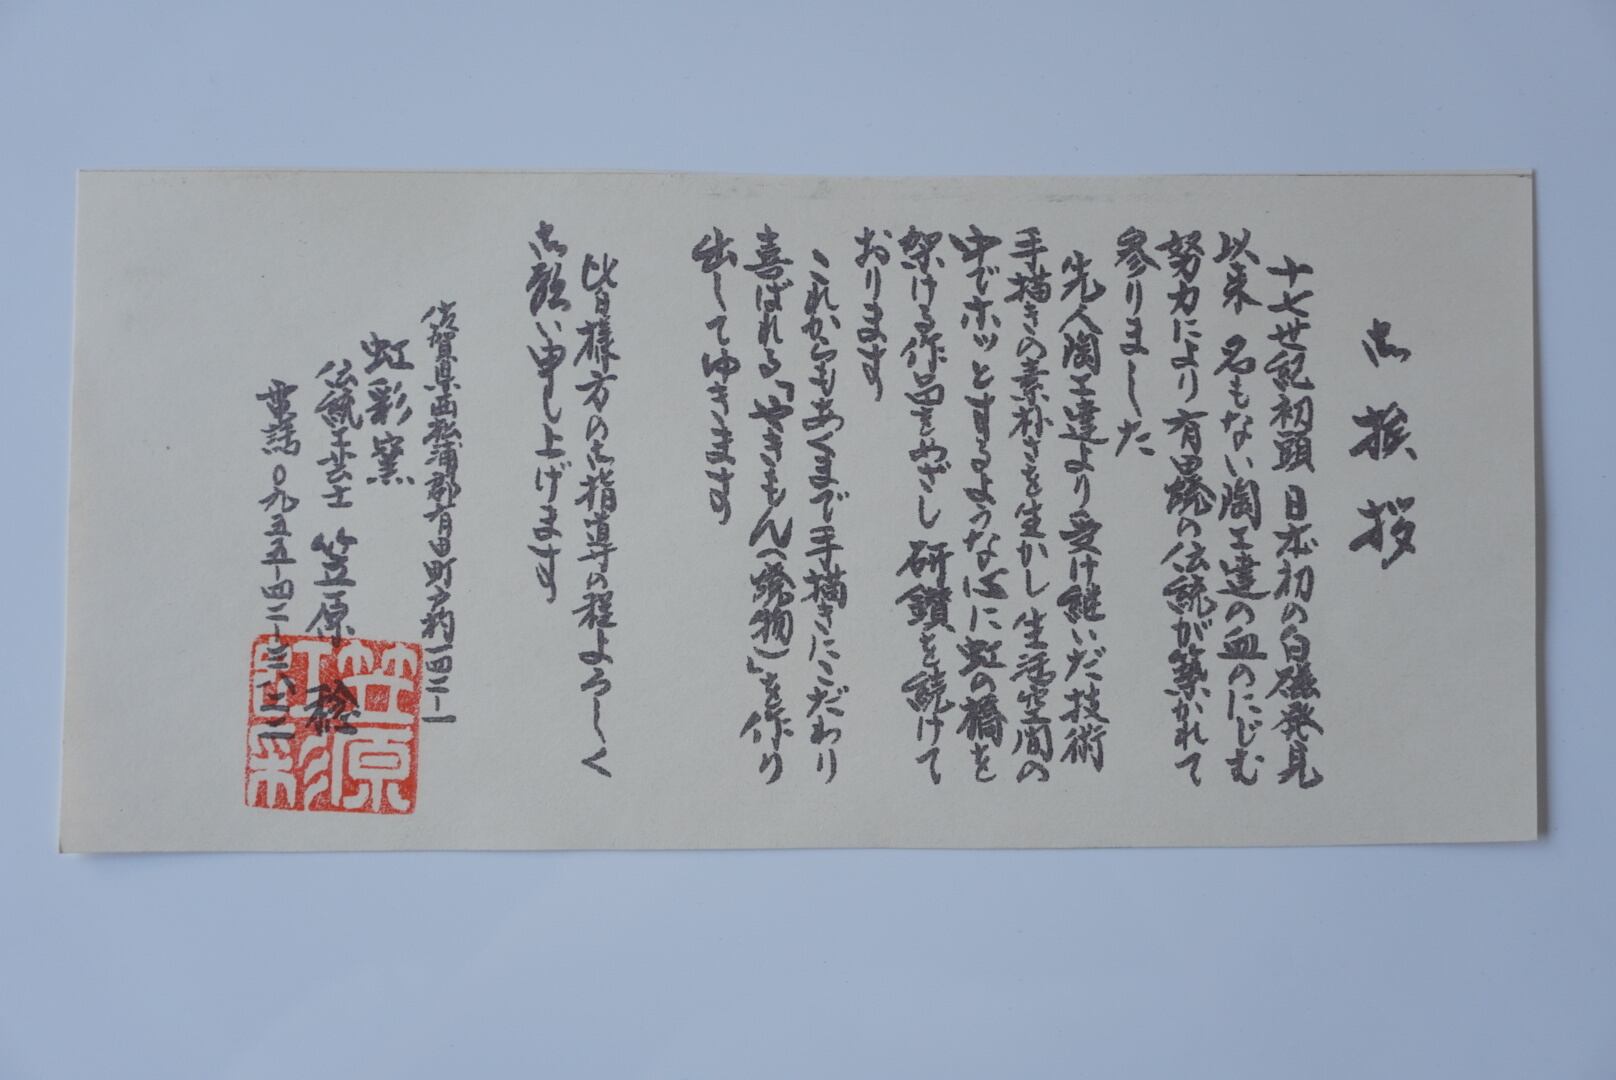 御挨拶
十七世紀初頭 日本初の白磁発見
以来 名もない陶工達の血のにじむ
努力により有田焼の伝統が築かれて
参りました
先人陶工達より受け継いだ技術
手描きの素朴さを生かし生活空間の
中でホッとするような心に虹の橋を
架ける作品をめざし 研鑽を続けて
おります
これからもあくまで手描きにこだわり
喜ばれる「やきもん(焼物)」を作り
出してゆきます
皆様方の御指導の程よろしく
御願い申し上げます
佐賀県西松浦郡有田町戸杓一四二ー一
虹彩窯
伝統工芸士 笠原 稔
電話〇九五五ー四二ー三八三三
笠原
虹彩